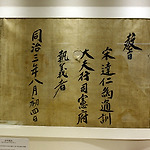 督
宋達仁為通訓
大夫行司憲府
執義者
同治三年八月初四日